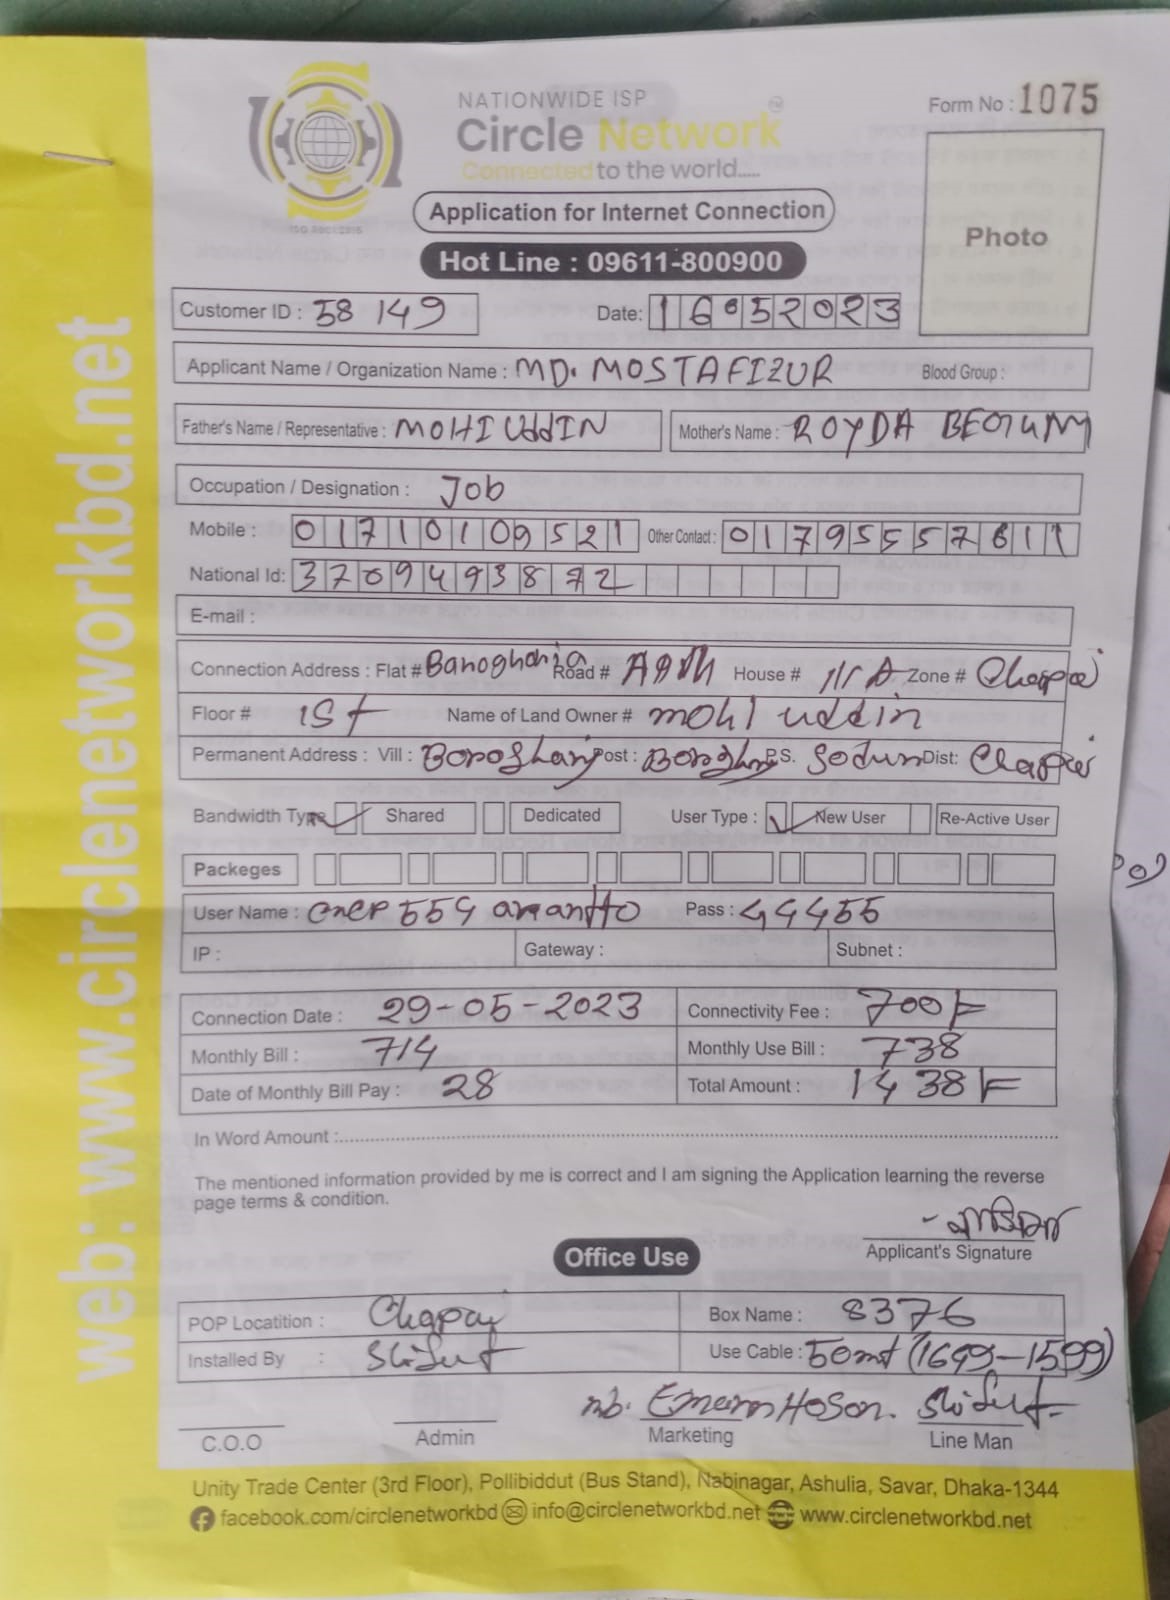 web: www.circlenetworkbd.net
NATIONWIDE ISP
Circle Network
Connected to the world.....
Form No : 1075
Application for Internet Connection
Photo
Hot Line : 09611-800900
Customer ID : 58 149 Date: 16052023
Applicant Name / Organization Name : MD. MOSTAFIZUR Blood Group :
Father's Name / Representative : MOHIUddIN Mother's Name : ROYDA BEGUM
Occupation / Designation : Job
Mobile : 01710109521 Other Contact : 01795557611
National Id: 3709493872
E-mail :
Connection Address : Flat # Road # House # Zone #
Floor # 1St Name of Land Owner # mohi uddin
Permanent Address : Vill : Post : P.S. Dist:
Bandwidth Type Shared Dedicated User Type : New User Re-Active User
Packeges
User Name : Pass : 44455
IP : Gateway : Subnet :
Connection Date : 29-05-2023 Connectivity Fee : 700/=
Monthly Bill : 714 Monthly Use Bill : 738
Date of Monthly Bill Pay : 28 Total Amount : 1438/=
In Word Amount :
The mentioned information provided by me is correct and I am signing the Application learning the reverse
page terms & condition.
Applicant's Signature
Office Use
POP Locatition : Chapai Box Name : 8376
Installed By : Use Cable : 50mt (1649-1599)
C.O.O Admin Marketing Line Man
Unity Trade Center (3rd Floor), Pollibiddut (Bus Stand), Nabinagar, Ashulia, Savar, Dhaka-1344
facebook.com/circlenetworkbd info@circlenetworkbd.net www.circlenetworkbd.net